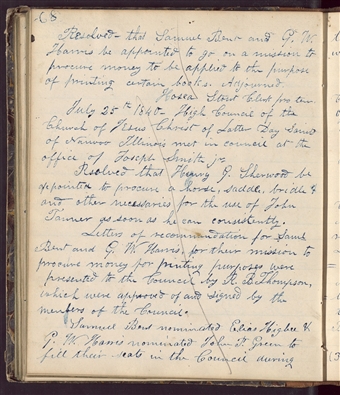 68
Resolved that Samuel Bent and G. W.
Harris be appointed to go on a mission to
procure money to be applied to the purpose
of printing certain books. Adjourned
Hosea Stout Clerk pro tem
July 25th 1840 - High Council of the
Church of Jesus Christ of Latter Day Saints
of Nauvoo Illinois met in council at the
office of Joseph Smith jr.
Resolved that Henry G. Sherwood be
appointed to procure a horse, saddle, bridle &
and other necessaries for the use of John
Tanner as soon as he can consistently.
Letters of recommendation for Saml
Bent and G. W. Harris, for their mission to
procure money for printing purposes were
presented to the Council by R. B. Thompson,
which were approved of and signed by the
members of the Council.
Samuel Bent nominated Elias Higbee &
G. W. Harris nominated John P. Green to
fill their seats in the Council during